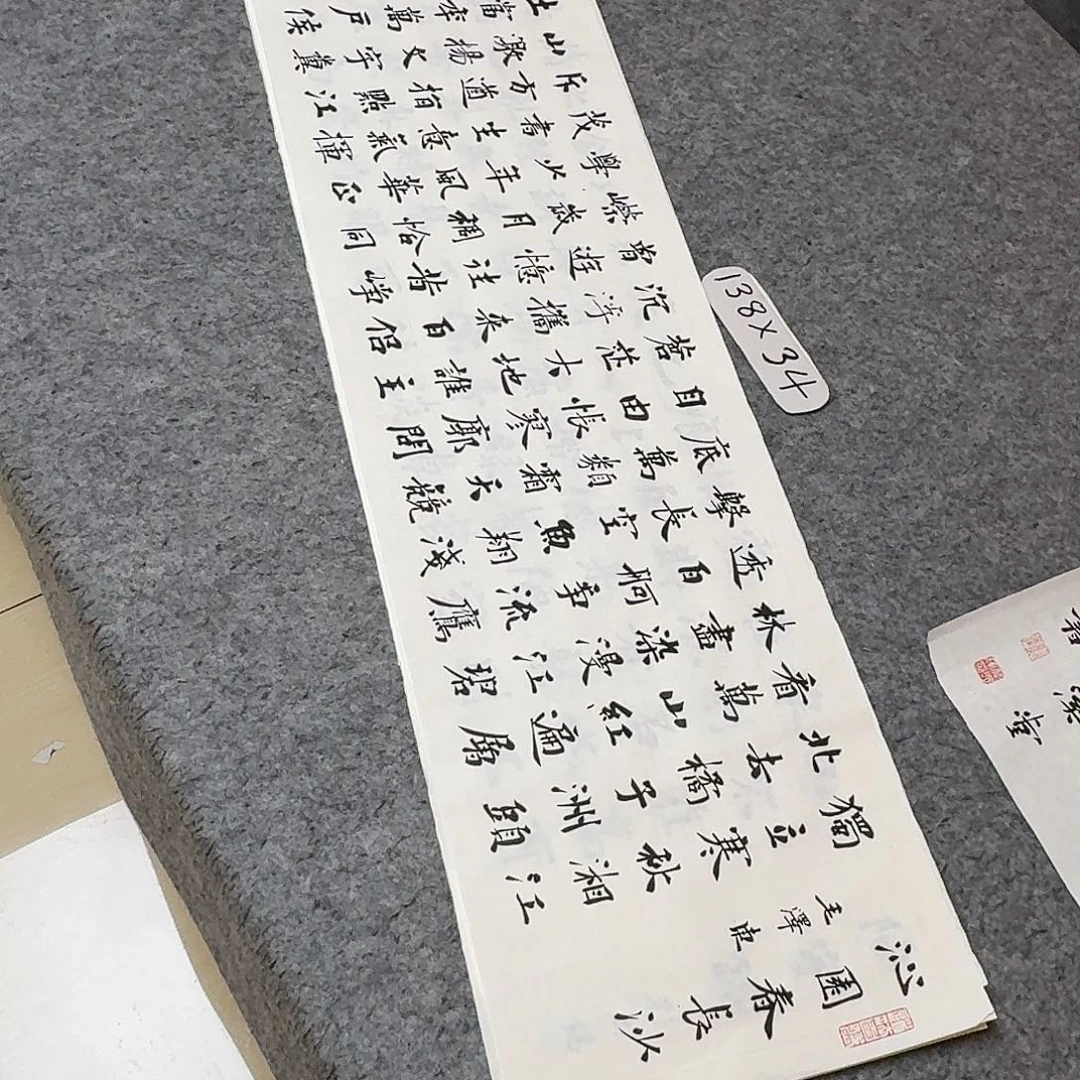 沁園春長沙
毛澤東
獨立寒秋湘江
北去橘子洲頭
看萬山紅遍層
林盡染漫江碧
透百舸爭流鷹
擊長空魚翔淺
底萬類霜天競
自由悵寥廓問
蒼茫大地誰主
沉浮攜來百侶
曾遊憶往昔崢
嶸歲月稠恰同
學少年風華正
茂書生意氣揮
斥方遒指點江
山激揚文字糞
土當年萬戶侯
138X34